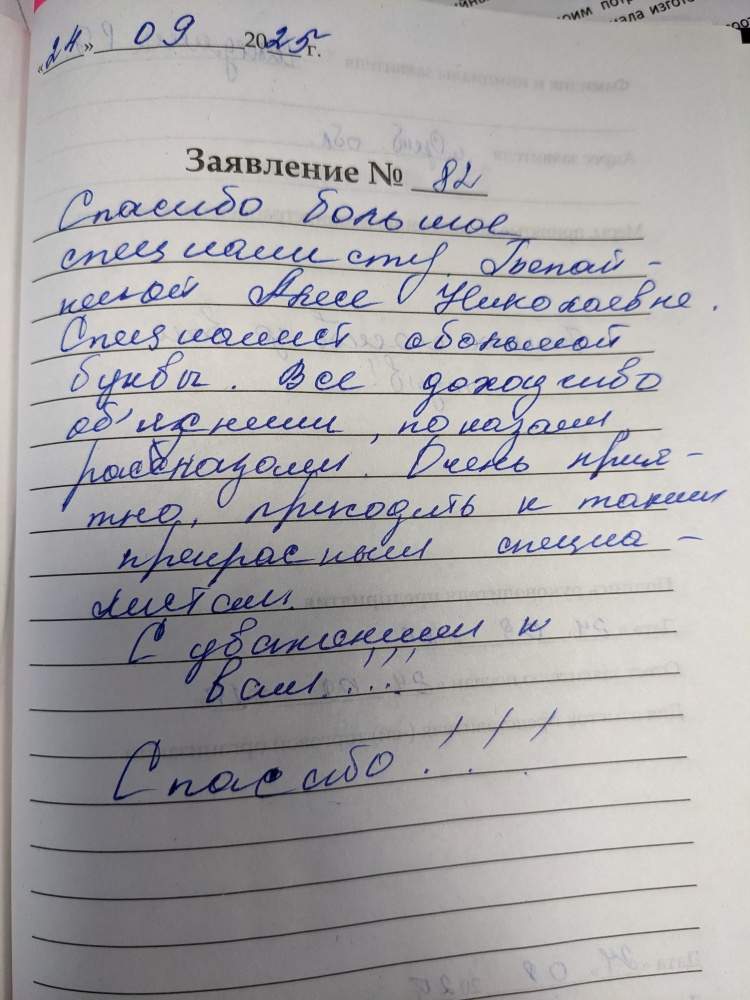 «24» 09 2025 г.
Заявление № 82
Спасибо большое
специалисту
Николаевне.
Специалист сбольшой
буквы. Все доходчиво
об'яснили, показали,
рассказали. Очень прия-
тно, приходить к таким
прекрасным специа-
листам.
С уважением к
вам!!!
Спасибо!!!